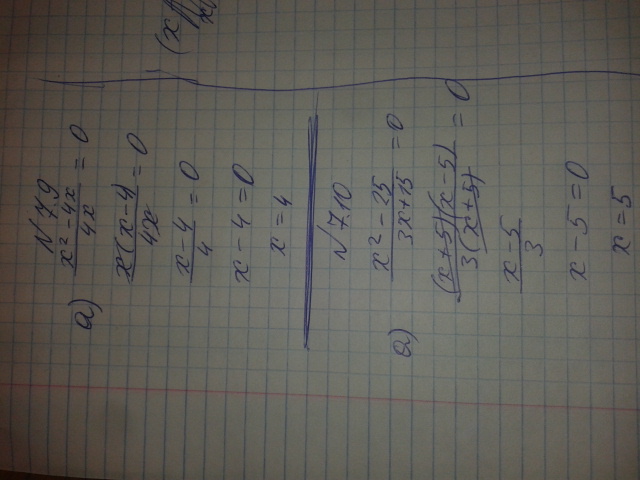 (x
N 7.9
а) (x² - 4x)/(4x) = 0
(x(x-4))/(4x) = 0
(x-4)/4 = 0
x - 4 = 0
x = 4
N 7.10
а) (x² - 25)/(3x+15) = 0
((x+5)(x-5))/(3(x+5)) = 0
(x-5)/3
x - 5 = 0
x = 5